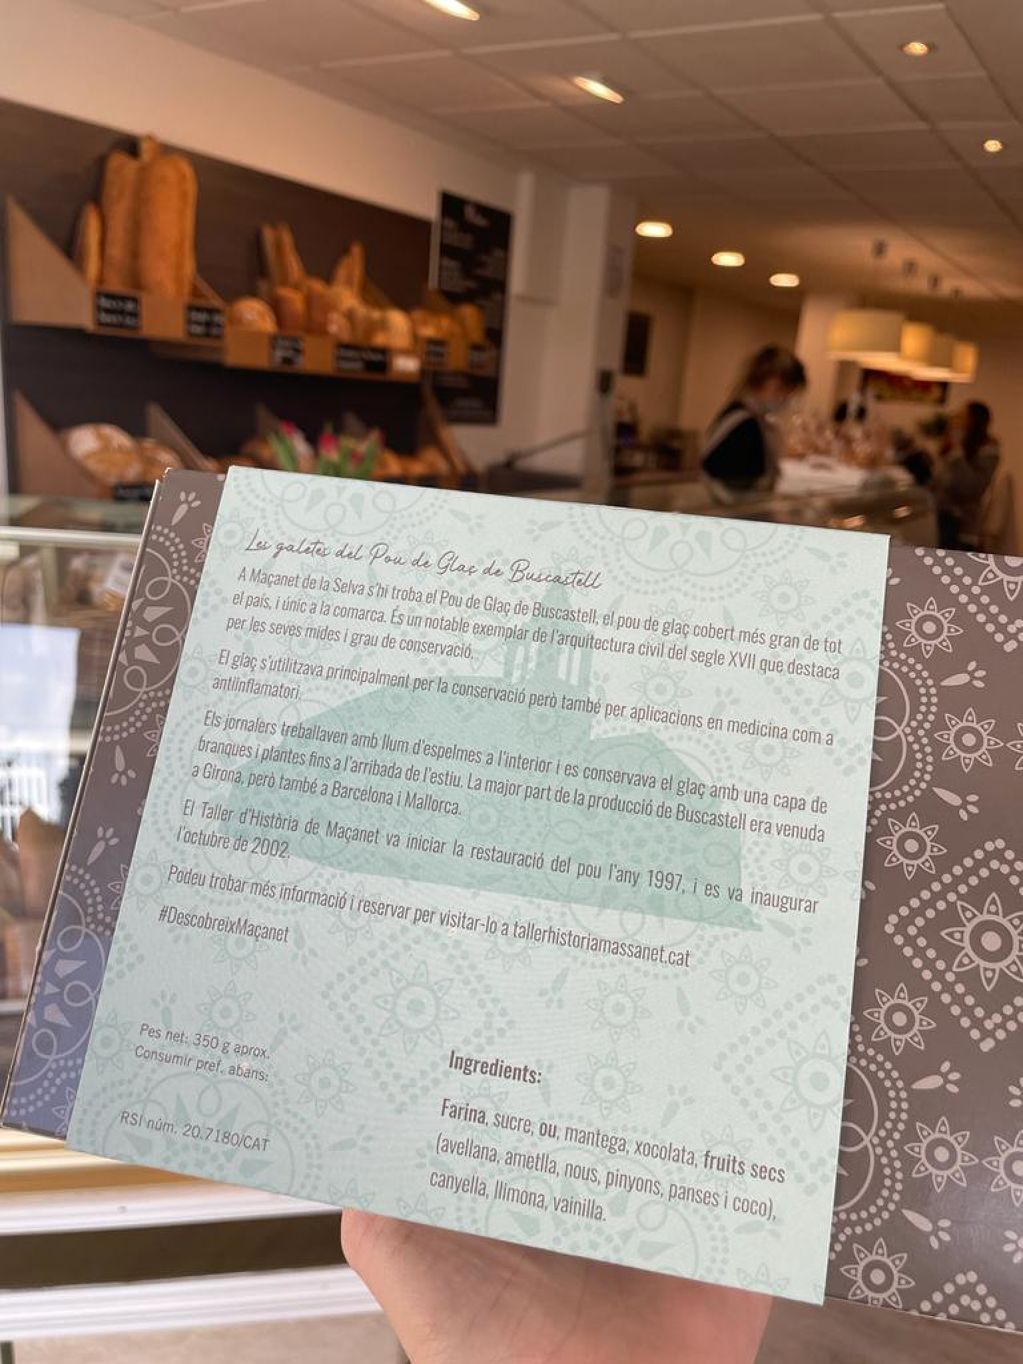 Les galetes del Pou de Glaç de Buscastell
A Maçanet de la Selva s'hi troba el Pou de Glaç de Buscastell, el pou de glaç cobert més gran de tot
el país, i únic a la comarca. És un notable exemplar de l'arquitectura civil del segle XVII que destaca
per les seves mides i grau de conservació.
El glaç s'utilitzava principalment per la conservació però també per aplicacions en medicina com a
antiinflamatori.
Els jornalers treballaven amb llum d'espelmes a l'interior i es conservava el glaç amb una capa de
branques i plantes fins a l'arribada de l'estiu. La major part de la producció de Buscastell era venuda
a Girona, però també a Barcelona i Mallorca.
El Taller d'Història de Maçanet va iniciar la restauració del pou l'any 1997, i es va inaugurar
l'octubre de 2002.
Podeu trobar més informació i reservar per visitar-lo a tallerhistoriamassanet.cat
#DescobreixMaçanet
Pes net: 350 g aprox.
Consumir pref. abans:
RSI núm. 20.7180/CAT
Ingredients:
Farina, sucre, ou, mantega, xocolata, fruits secs
(avellana, ametlla, nous, pinyons, panses i coco),
canyella, llimona, vainilla.